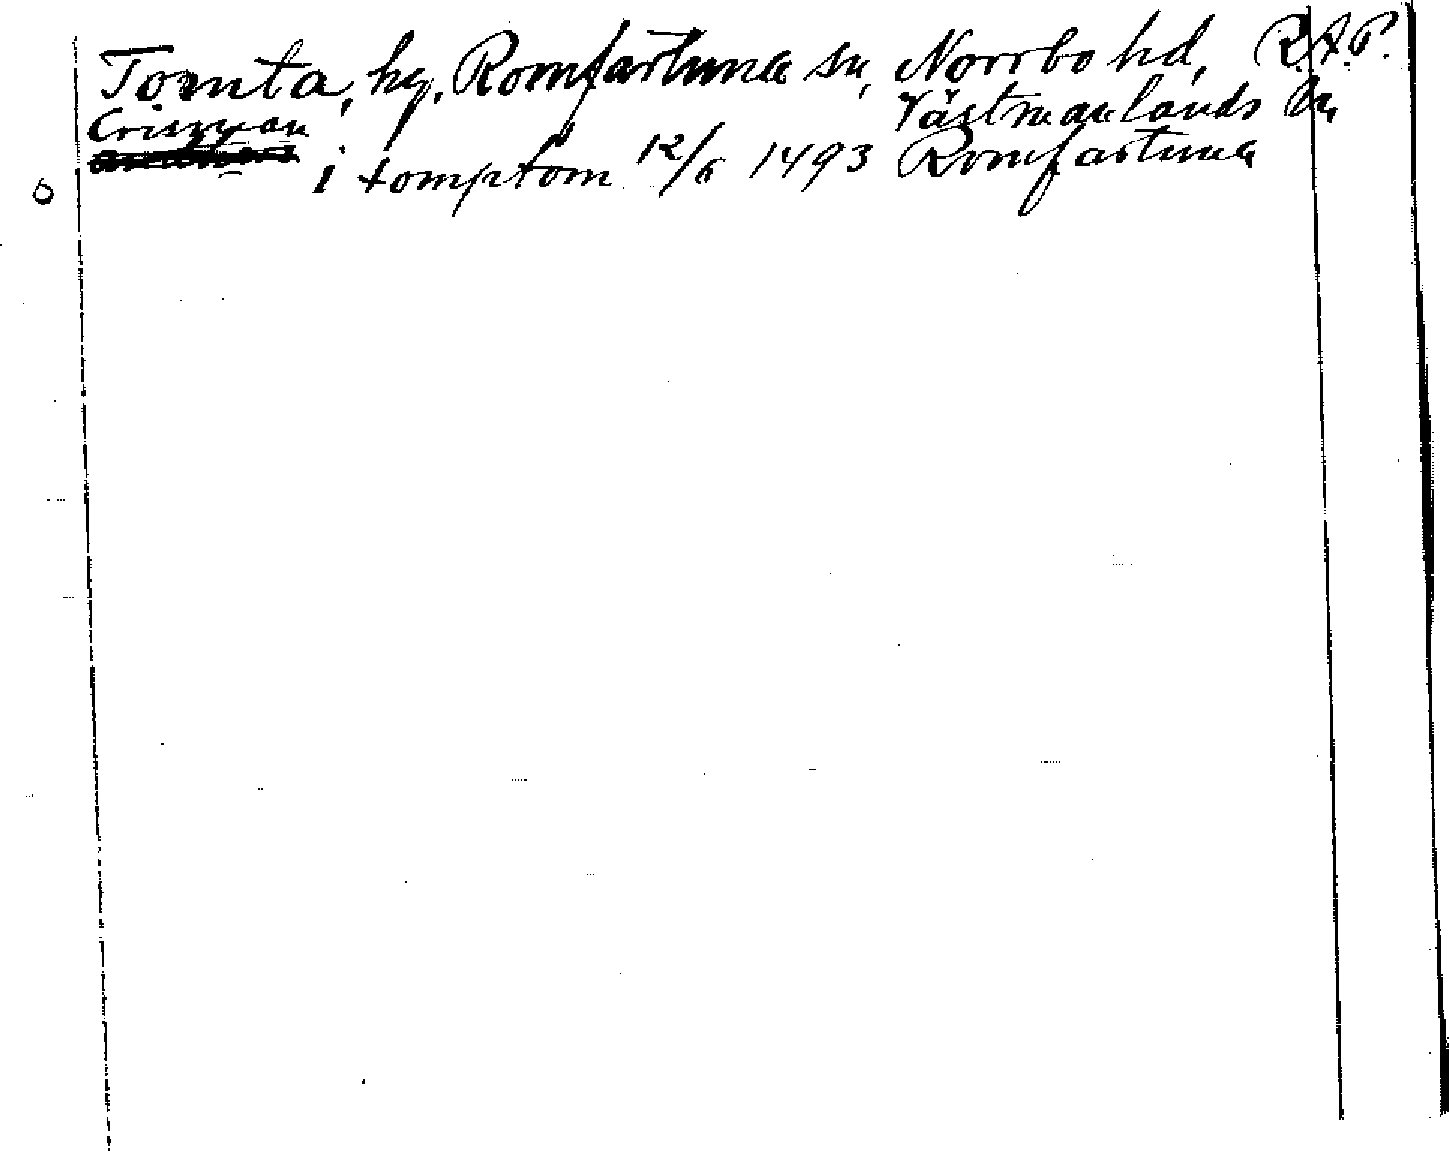 Tomta, hg, Romfartuna sn, Norrbo hd, R.A.P.
Västmanlands län
i tomptom 12/6 1493 Romfartuna